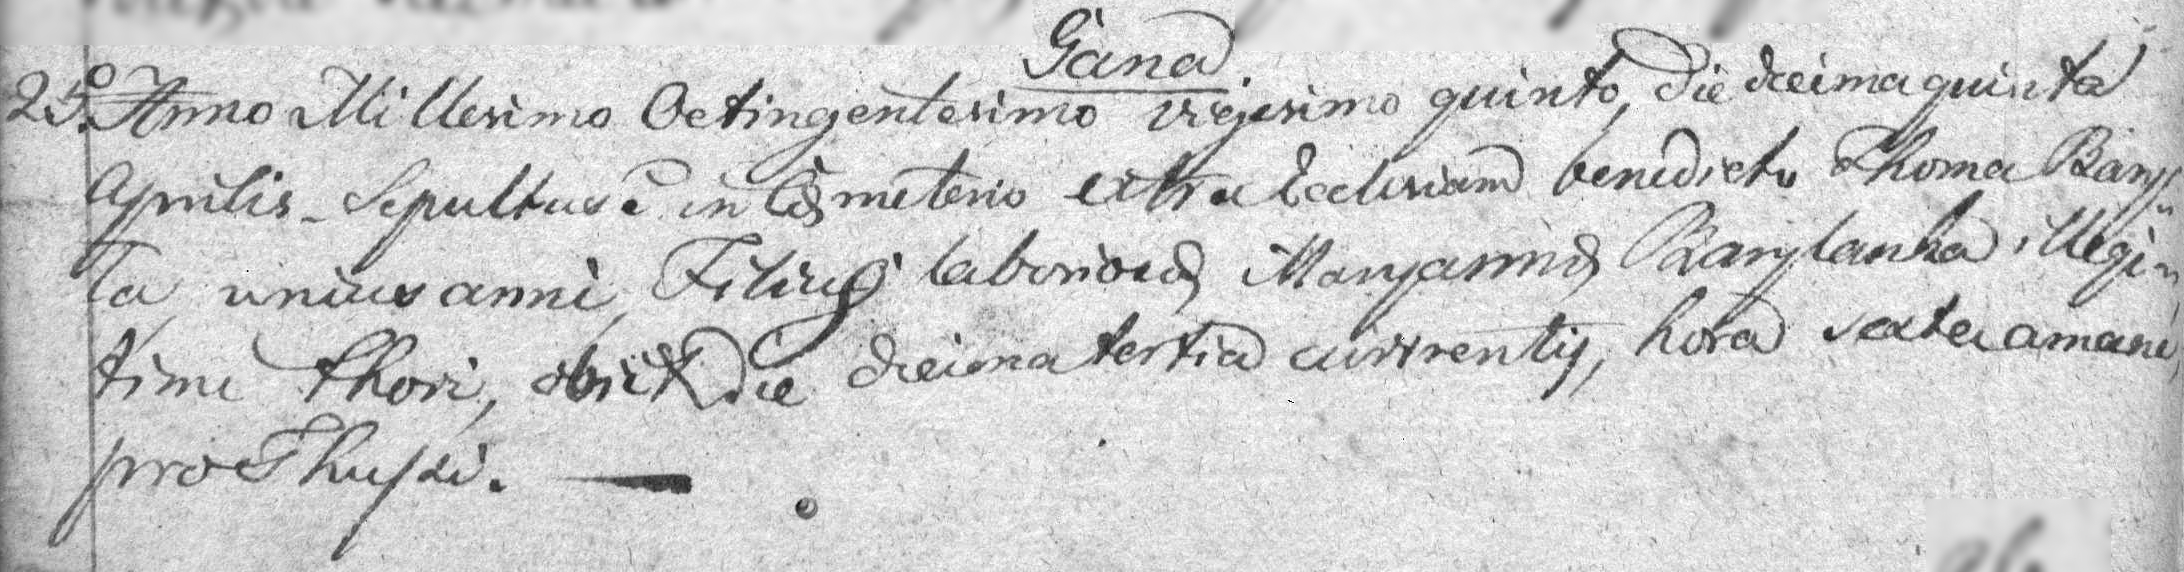 Gana
25° Anno Millesimo Octingentesimo vigesimo quinto, Die decima quinta
Aprilis Sepultus ē in Cœmeterio extra Ecclesiam benedicto Thoma Bary-
ła unius anni, Filius laboriosæ Maryannæ Barylanka illegi-
time thori, obiit Die decima tertia currentis, hora sexta amane,
pro